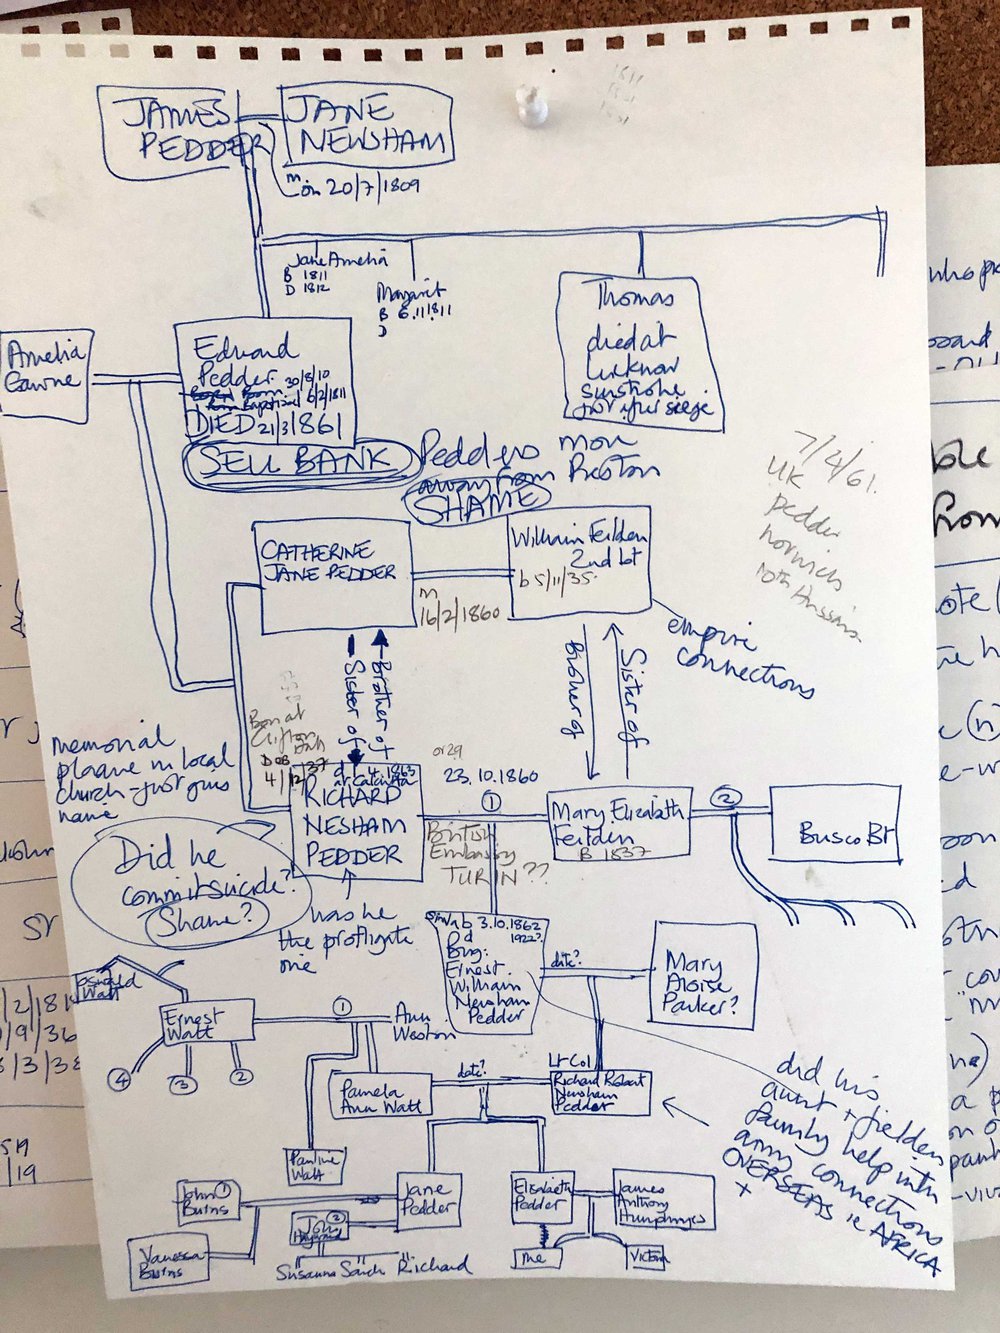 JAMES
PEDDER
JANE
NEWSHAM
m
on 20/7/1809
Jane Amelia
B 1811
D 1812
Margaret
B 6.11.1811
D
Thomas
died at
Lucknow
sunstroke
just after siege
Amelia
Gawne
Edward
Pedder 30/8/10
Born
Baptised 6/2/1811
DIED 21/3/1861
SELL BANK
Pedders move
away from Preston
SHAME
7/4/61.
UK
pedder
norwich
10th Hussars
CATHERINE
JANE PEDDER
William Feilden
2nd bt
b 5/11/35.
m
16/2/1860
empire
connections
Sister of
Brother of
Brother of
Sister of
memorial
plaque in local
church - just gives
name
Born at
Clifton
DOB
4/12/37
d. 4.1863
at Calcutta
RICHARD
NESHAM
PEDDER
or 29
23.10.1860
①
British
Embassy
TURIN??
Mary Elizabeth
Feilden
B 1837
②
Busco Bt
Did he
commit suicide?
Shame?
was he
the profligate
one
b 3.10.1862
d 1922?
Brig:
Ernest
William
Newsham
Pedder
date?
Mary
Aloise
Parker?
Oswald
Watt
Ernest
Watt
①
Ann
Weston
④
③
②
Pamela
Ann Watt
date?
Lt Col
Richard Robert
Newsham
Pedder
did his
aunt + fielden
family help with
army connections
OVERSEAS ie AFRICA
+
Pauline
Watt
John ①
Burns
Jane
Pedder
Elizabeth
Pedder
James
Anthony
Humphryes
②
Vanessa
Burns
Susanna Sarah Richard
me
Victoria